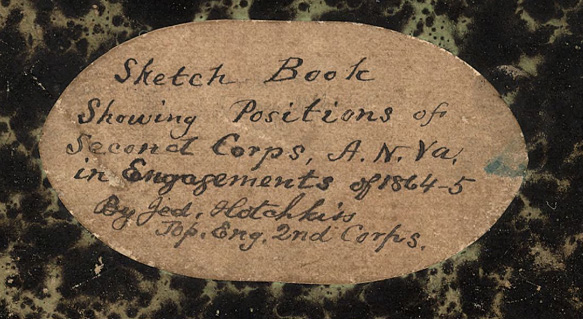 Sketch Book
Showing Positions of
Second Corps, A.N.Va.
in Engagements of 1864-5
By Jed. Hotchkiss
Top. Eng. 2nd Corps.